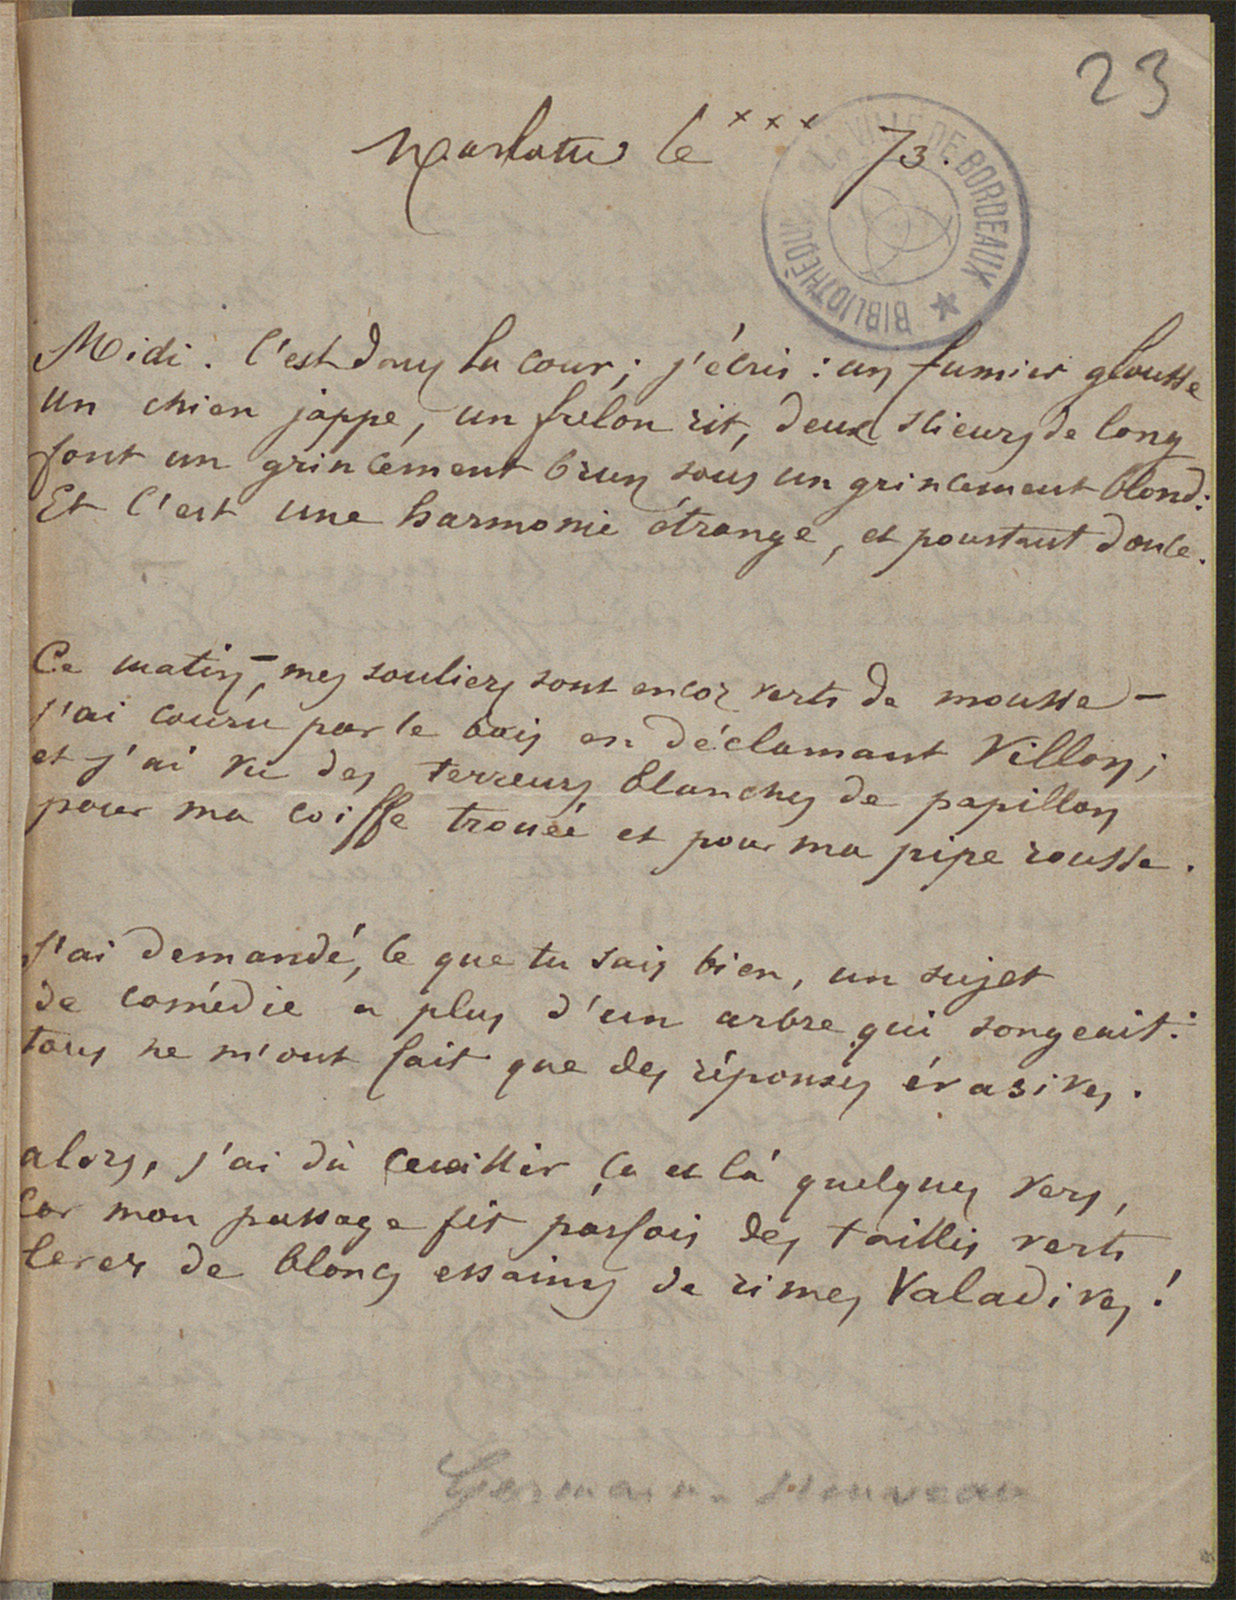 23
Marlotte le xxx 73.
BIBLIOTHÈQUE DE LA VILLE DE BORDEAUX
Midi. C'est dans la cour; j'écris : un fumier glousse
un chien jappe, un frelon rit, deux scieurs de long
font un grincement brun sous un grincement blond:
Et c'est une harmonie étrange, et pourtant douce.
Ce matin, - mes souliers sont encor verts de mousse -
j'ai couru par le bois en déclamant Villon;
et j'ai vu des terreurs blanches de papillon
pour ma coiffe trouée et pour ma pipe rousse.
J'ai demandé, ce que tu sais bien, un sujet
de comédie a plus d'un arbre qui songeait:
tous ne m'ont fait que des réponses évasives.
alors, j'ai dû cueillir ça et là quelques vers,
car mon passage fit parfois des taillis verts
lever de blancs essaims de rimes Valadives!
Germain Nouveau